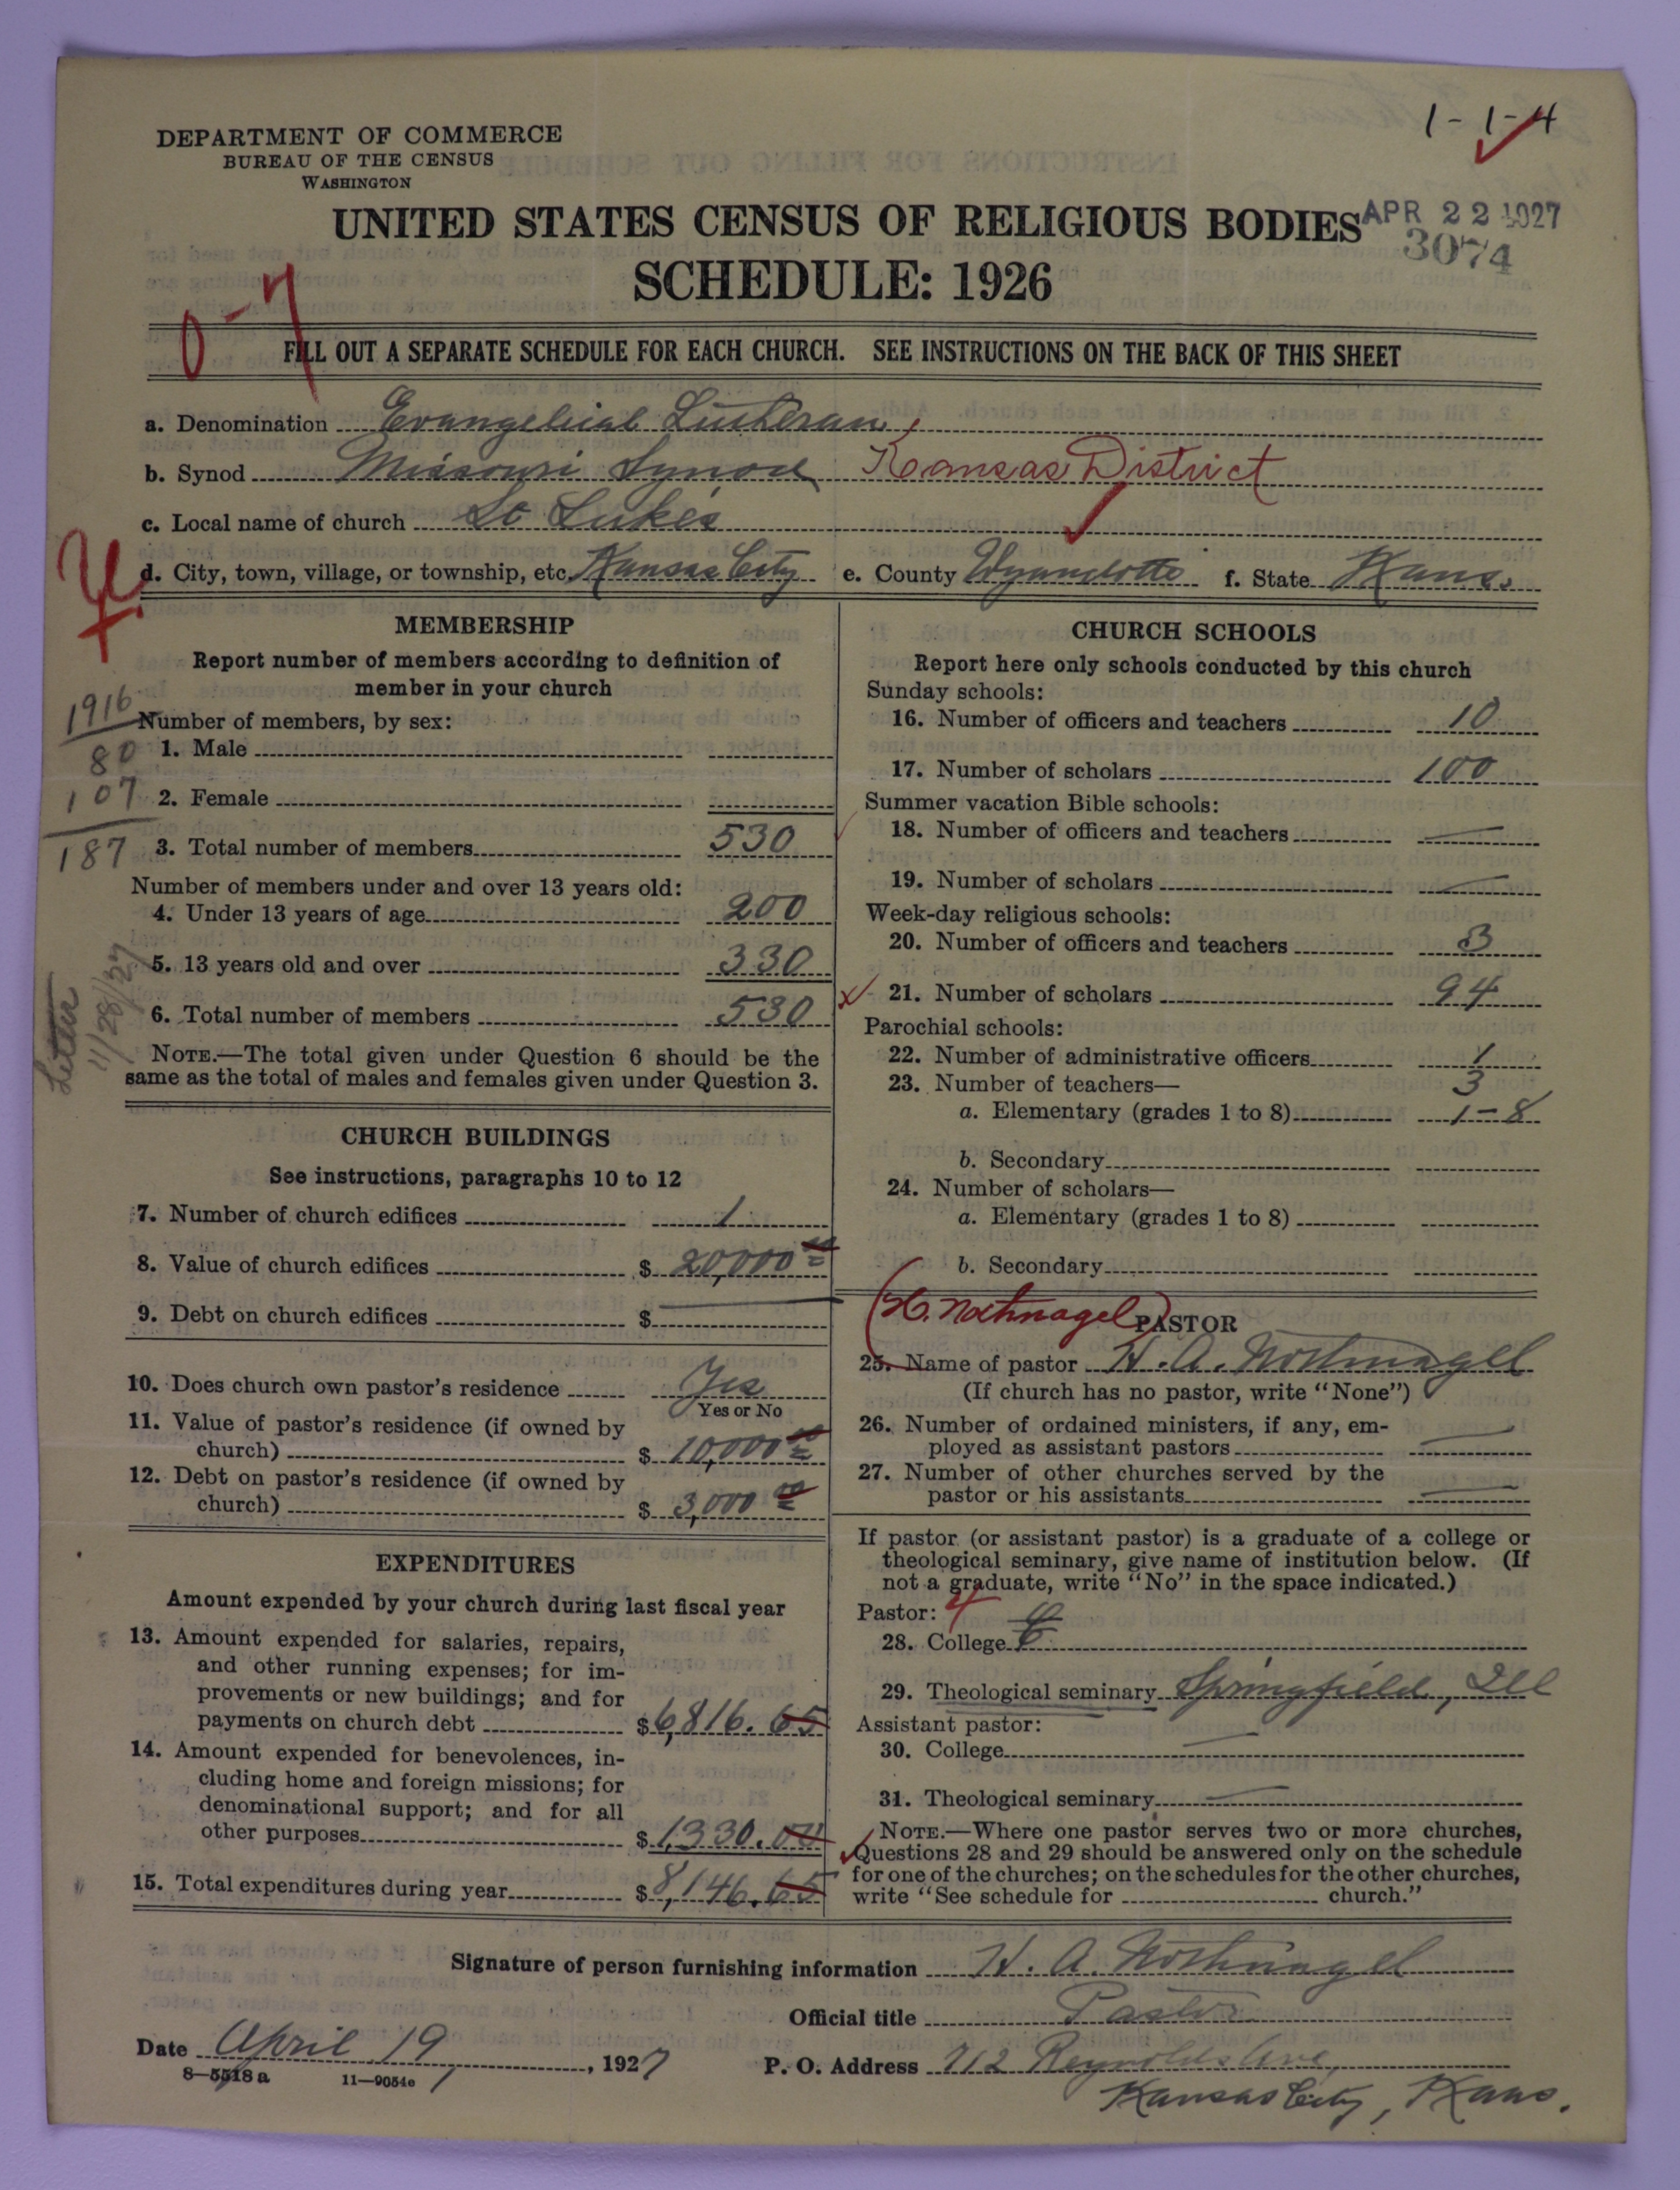 1-1-4
DEPARTMENT OF COMMERCE
BUREAU OF THE CENSUS
WASHINGTON
UNITED STATES CENSUS OF RELIGIOUS BODIES
APR 22 1927
3074
SCHEDULE: 1926
0-7
FILL OUT A SEPARATE SCHEDULE FOR EACH CHURCH. SEE INSTRUCTIONS ON THE BACK OF THIS SHEET
a. Denomination Evangelical Lutheran,
b. Synod Missouri Synod Kansas District
c. Local name of church St Luke's
d. City, town, village, or township, etc. Kansas City e. County Wyandotte f. State Kans.
MEMBERSHIP
Report number of members according to definition of
member in your church
1916
Number of members, by sex:
80 1. Male
107 2. Female
187 3. Total number of members 530
Number of members under and over 13 years old:
4. Under 13 years of age 200
5. 13 years old and over 330
6. Total number of members 530
Letter
11/28/27
NOTE.—The total given under Question 6 should be the
same as the total of males and females given under Question 3.
CHURCH BUILDINGS
See instructions, paragraphs 10 to 12
7. Number of church edifices 1
8. Value of church edifices $ 20,000 00
9. Debt on church edifices $ —
10. Does church own pastor's residence Yes
Yes or No
11. Value of pastor's residence (if owned by
church) $ 10,000 00
12. Debt on pastor's residence (if owned by
church) $ 3,000 00
EXPENDITURES
Amount expended by your church during last fiscal year
13. Amount expended for salaries, repairs,
and other running expenses; for im-
provements or new buildings; and for
payments on church debt $6,816.65
14. Amount expended for benevolences, in-
cluding home and foreign missions; for
denominational support; and for all
other purposes $1,330.00
15. Total expenditures during year $8,146.65
CHURCH SCHOOLS
Report here only schools conducted by this church
Sunday schools:
16. Number of officers and teachers 10
17. Number of scholars 100
Summer vacation Bible schools:
18. Number of officers and teachers —
19. Number of scholars —
Week-day religious schools:
20. Number of officers and teachers 3
21. Number of scholars 94
Parochial schools:
22. Number of administrative officers 1
23. Number of teachers— 3
a. Elementary (grades 1 to 8) 1-8
b. Secondary
24. Number of scholars—
a. Elementary (grades 1 to 8)
b. Secondary
(H. Nothnagel)
PASTOR
25. Name of pastor H. A. Nothnagel
(If church has no pastor, write "None")
26. Number of ordained ministers, if any, em-
ployed as assistant pastors —
27. Number of other churches served by the
pastor or his assistants —
If pastor (or assistant pastor) is a graduate of a college or
theological seminary, give name of institution below. (If
not a graduate, write "No" in the space indicated.)
Pastor: 4
28. College
29. Theological seminary Springfield, Ill
Assistant pastor:
30. College —
31. Theological seminary —
NOTE.—Where one pastor serves two or more churches,
Questions 28 and 29 should be answered only on the schedule
for one of the churches; on the schedules for the other churches,
write "See schedule for church."
Signature of person furnishing information H. A. Nothnagel
Official title Pastor
Date April 19, 1927
P. O. Address 712 Reynolds Ave,
Kansas City, Kans.
8-5518 a 11-9054e